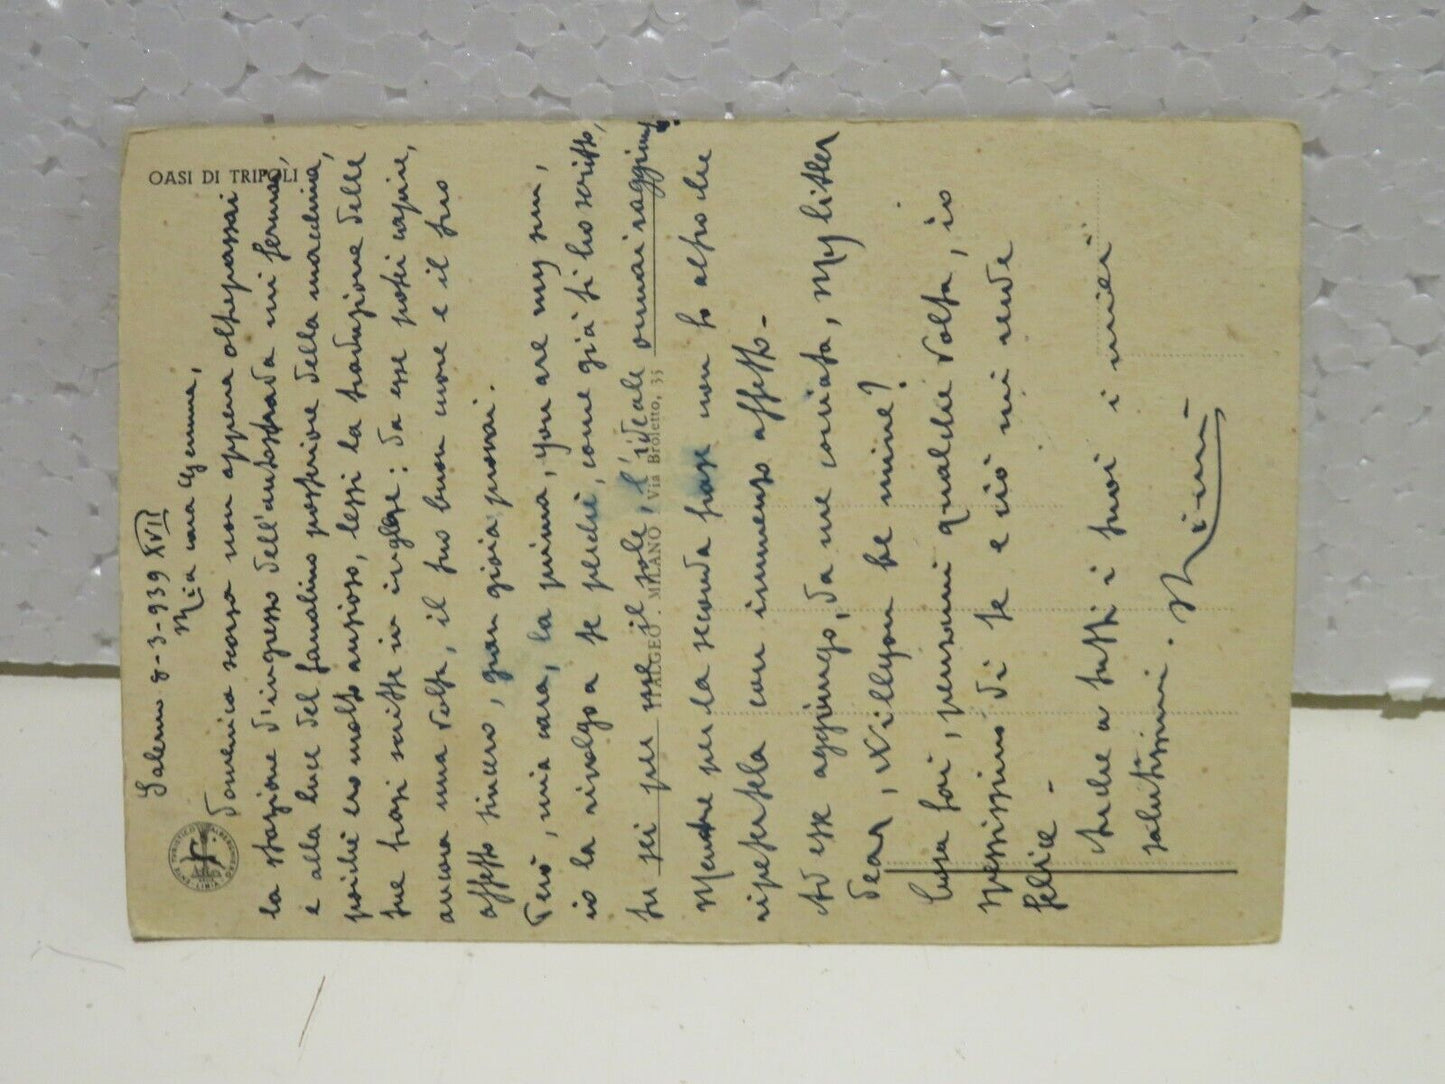 OASI DI TRIPOLI
ENTE TURISTICO ALBERGHIERO LIBIA
Salerno 8-3-939 XVII
Mia cara Gemma,
Domenica scorsa non appena oltrepassai
la stazione d'ingresso dell'autostrada mi fermai,
e alla luce del fanalino posteriore della macchina,
poiché ero molto ansioso, lessi la traduzione delle
tue frasi scritte in inglese: da esse potei capire,
ancora una volta, il tuo buon cuore e il tuo
affetto sincero, gran gioia provai.
Però, mia cara, la prima, you are my sun,
io la rivolgo a te perché, come già ti ho scritto,
tu sei per me il sole, l'ideale ormai raggiunto
ITALGEO - MILANO Via Broletto, 35
Mentre per la seconda frase non fo altro che
ripetertela con immenso affetto-
Ad esse aggiungo, da me coniata, My litler
dear, Willyou be mine?
Cosa fai, pensami qualche volta, io
spessissimo di te e ciò mi rende
felice-
Anche a tutti i tuoi i miei
salutissimi.